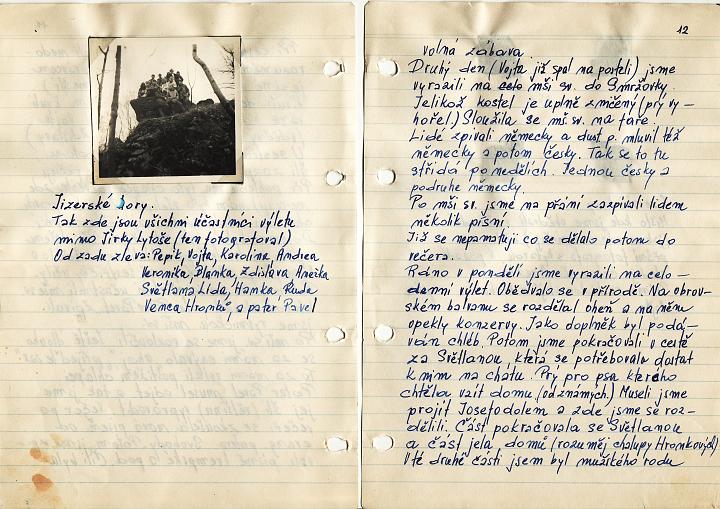 Jizerské hory.
Tak zde jsou všichni účastníci výletu
mimo Jirky Lytoše (ten fotografoval)
Od zadu zleva: Pepik, Vojta, Karolina, Andrea
Veronika, Blanka, Zdislava Anežka
Světlana, Lída, Hanka Ruda
Venca Hronků, a pater Pavel
12
volná zábava
Druhý den (Vojta již spal na posteli) jsme
vyrazili na mši sv. do Smržovky.
Jelikož kostel je uplně zničený (prý vy-
hořel.) Sloužila se mš. sv. na faře.
Lidé zpívali německy a dust p. mluvil též
německy a potom česky. Tak se to tu
střídá po nedělích. Jednou česky a
podruhe německy.
Po mši sv. jsme na přání zazpívali lidem
několik písní.
Již se nepamatuji co se dělalo potom do
večera.
Ráno v pondělí jsme vyrazili na celo-
denní výlet. Obědvalo se v přírodě. Na obrov-
ském balvanu se rozdělal oheň a na něm
opekly konzervy. Jako doplněk byl podá-
ván chléb. Potom jsme pokračovali v cestě
za Světlanou, která se potřebovala dostat
k nim na chatu. Prý pro psa kterého
chtěla vzít domu (od známých) Museli jsme
projít Josefodolem a zde jsme se roz-
dělili. Část pokračovala se Světlanou
a část jela domů (rozuměj chalupy Hronkových)
V té druhé části jsem byl mužského rodu